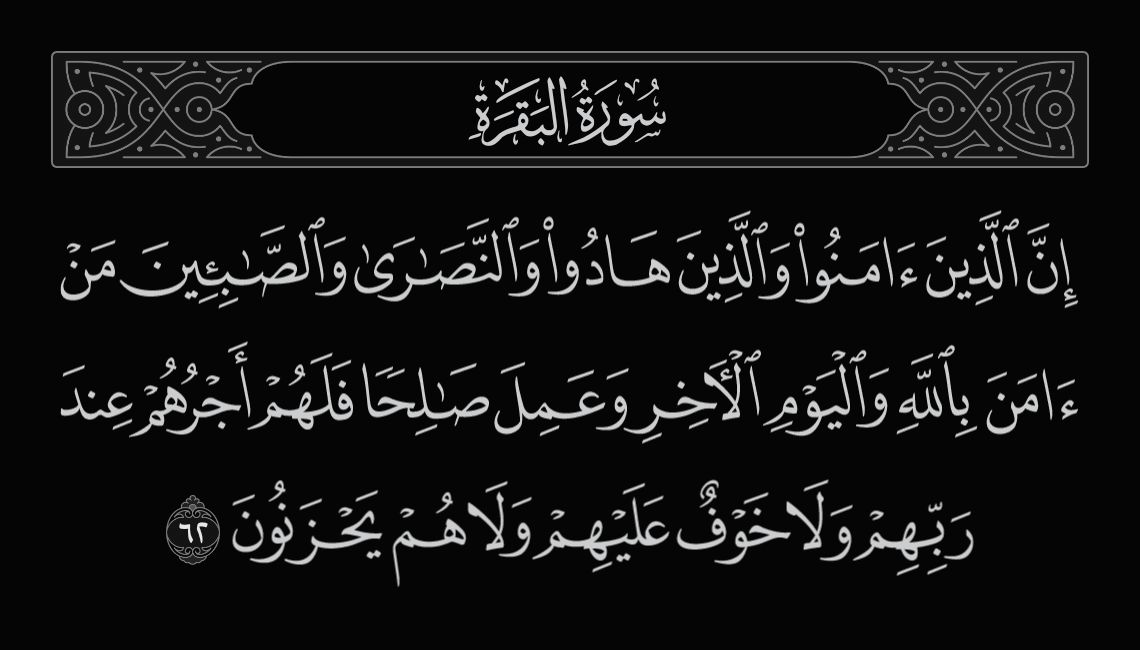 سُورَةُ الْبَقَرَةِ
إِنَّ ٱلَّذِينَ ءَامَنُوا۟ وَٱلَّذِينَ هَادُوا۟ وَٱلنَّصَـٰرَىٰ وَٱلصَّـٰبِـِٔينَ مَنْ
ءَامَنَ بِٱللَّهِ وَٱلْيَوْمِ ٱلْـَٔاخِرِ وَعَمِلَ صَـٰلِحًا فَلَهُمْ أَجْرُهُمْ عِندَ
رَبِّهِمْ وَلَا خَوْفٌ عَلَيْهِمْ وَلَا هُمْ يَحْزَنُونَ ٦٢